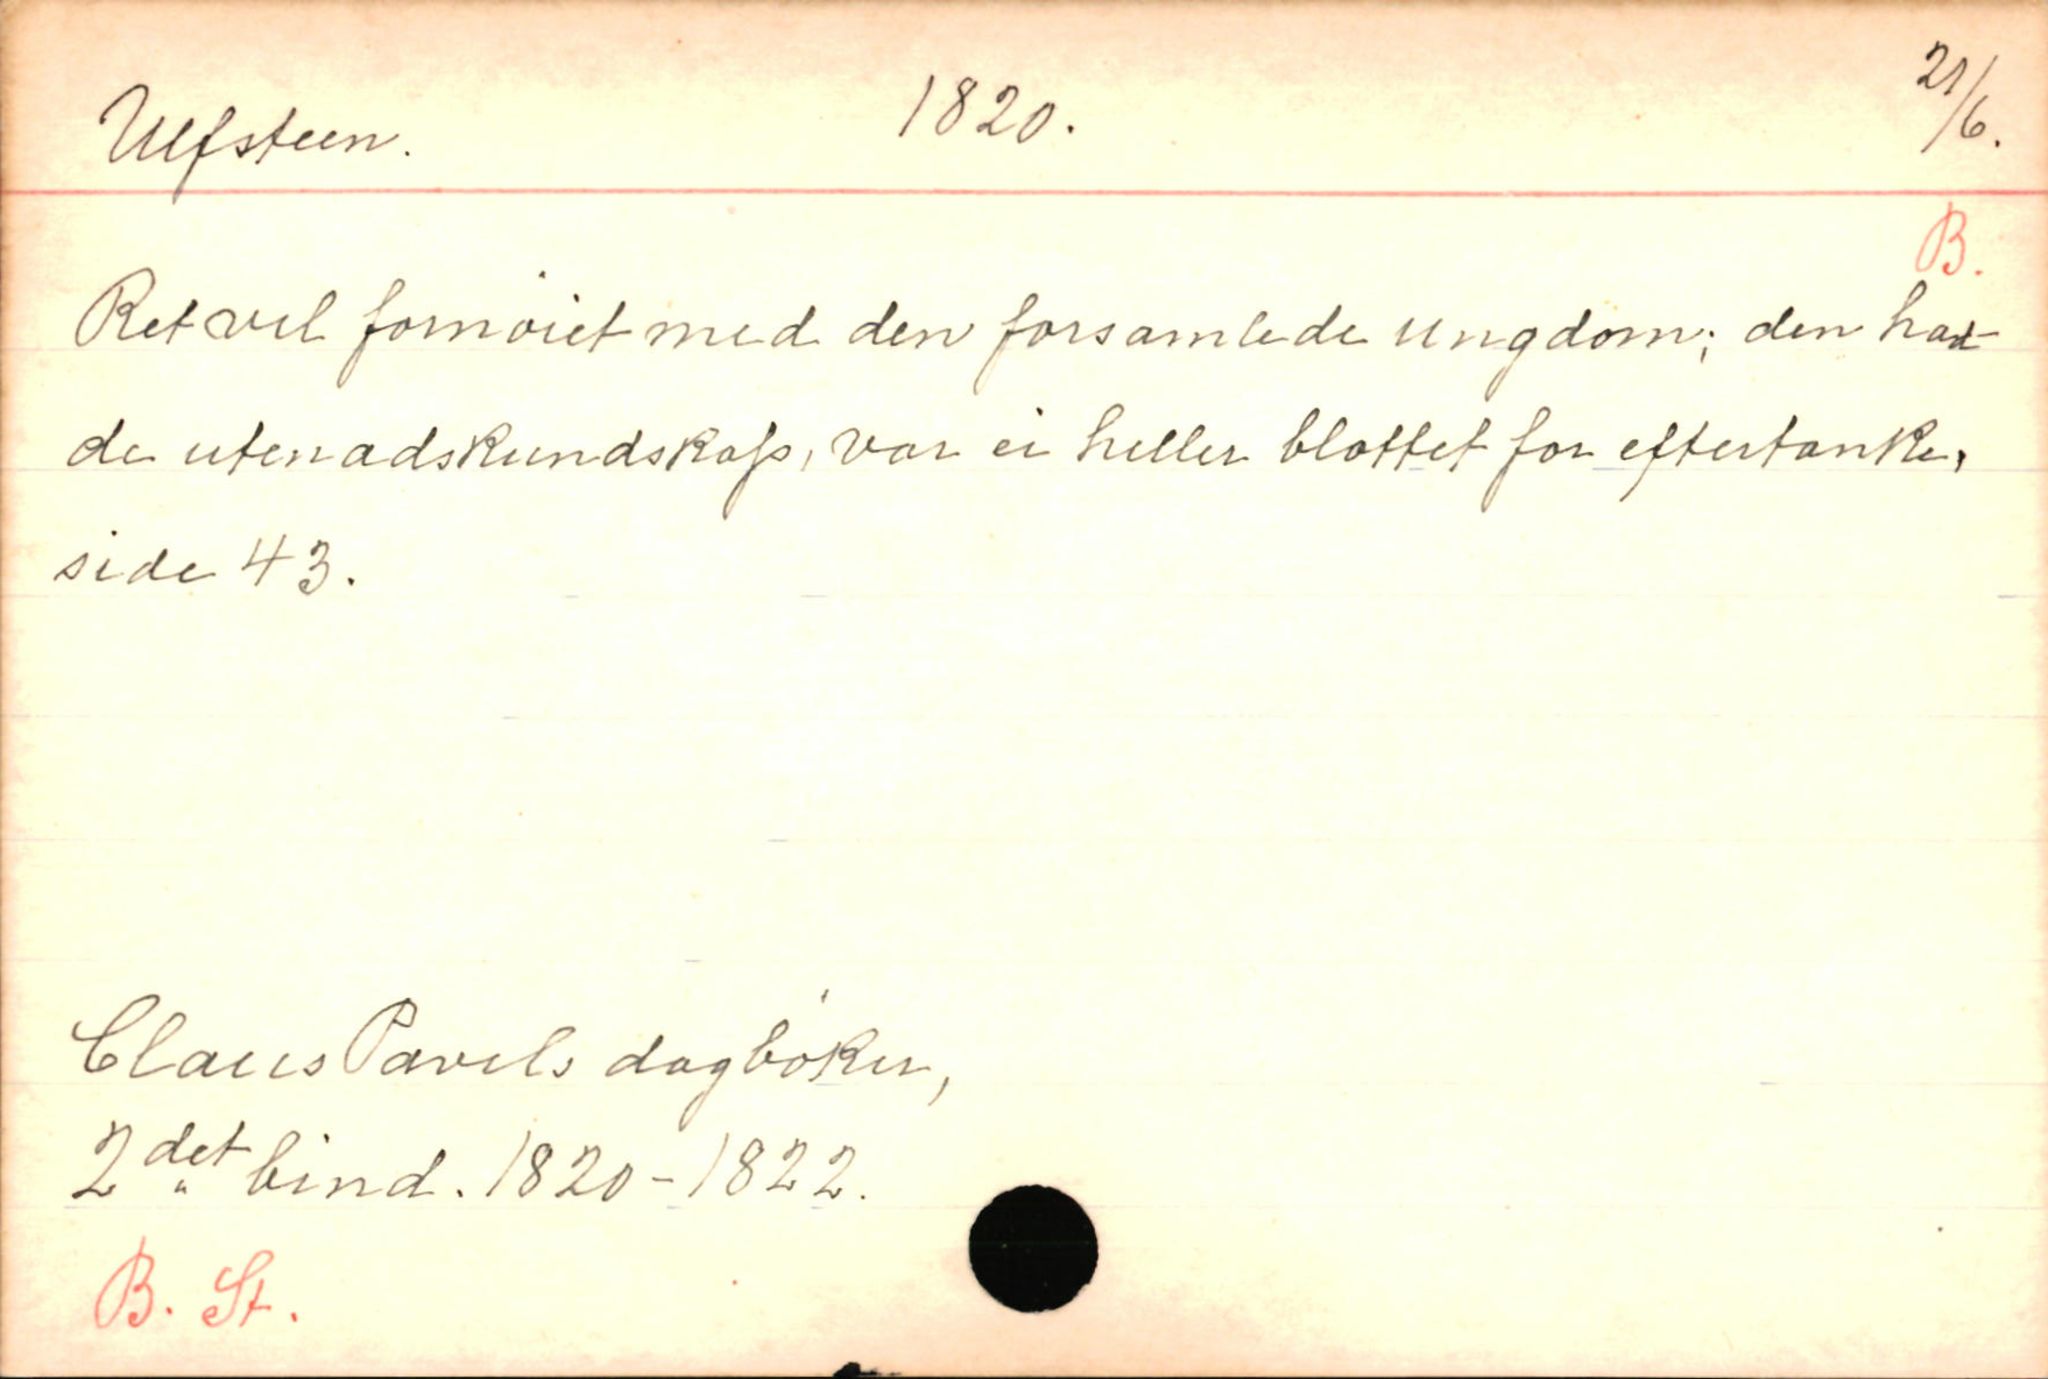 Ulfsteen. 1820. 21/6.
B.
Ret vel fornøiet med den forsamlede ungdom; den had-
de utenadskundskap, var ei heller blottet for eftertanke,
side 43.
Claus Pavels dagbøker,
2det bind. 1820-1822.
B. St.